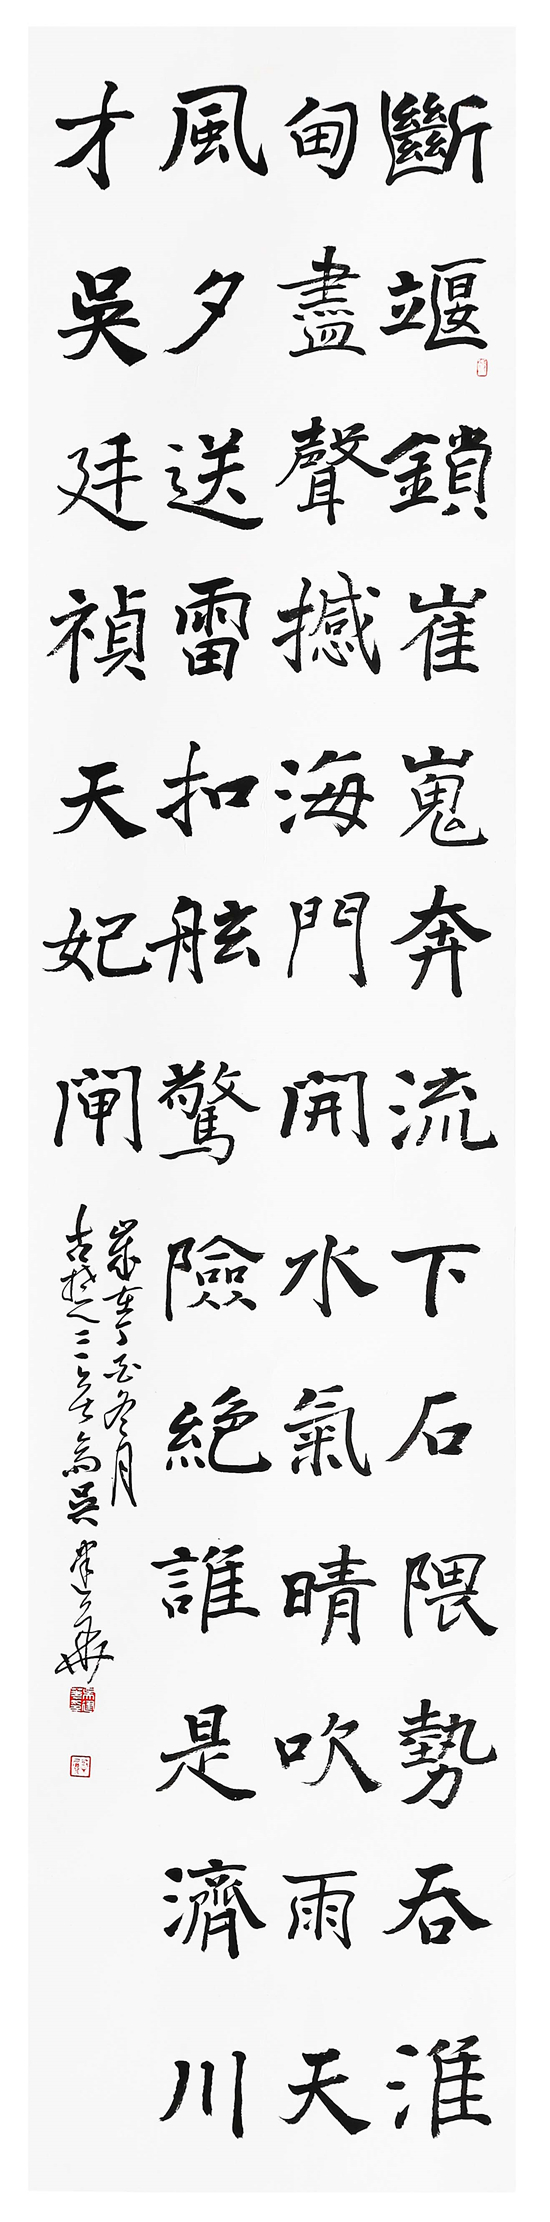 斷堰鎖崔嵬奔流下石隈勢吞淮
甸盡聲撼海門開水氣晴吹雨天
風夕送雷扣舷驚險絕誰是濟川
才吳廷禎天妃閘
歲在丁酉冬月
古楚人三 齋吳建華